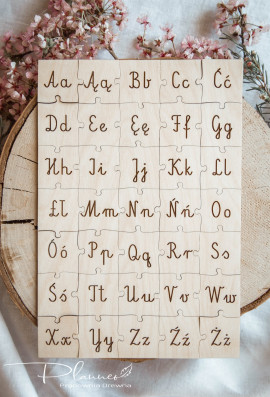 Aa Ąą Bb Cc Ćć
Dd Ee Ęę Ff Gg
Hh Ii Jj Kk Ll
Łł Mm Nn Ńń Oo
Óó Pp Qq Rr Ss
Śś Tt Uu Vv Ww
Xx Yy Zz Źź Żż
Planneo
Pracownia Drewna